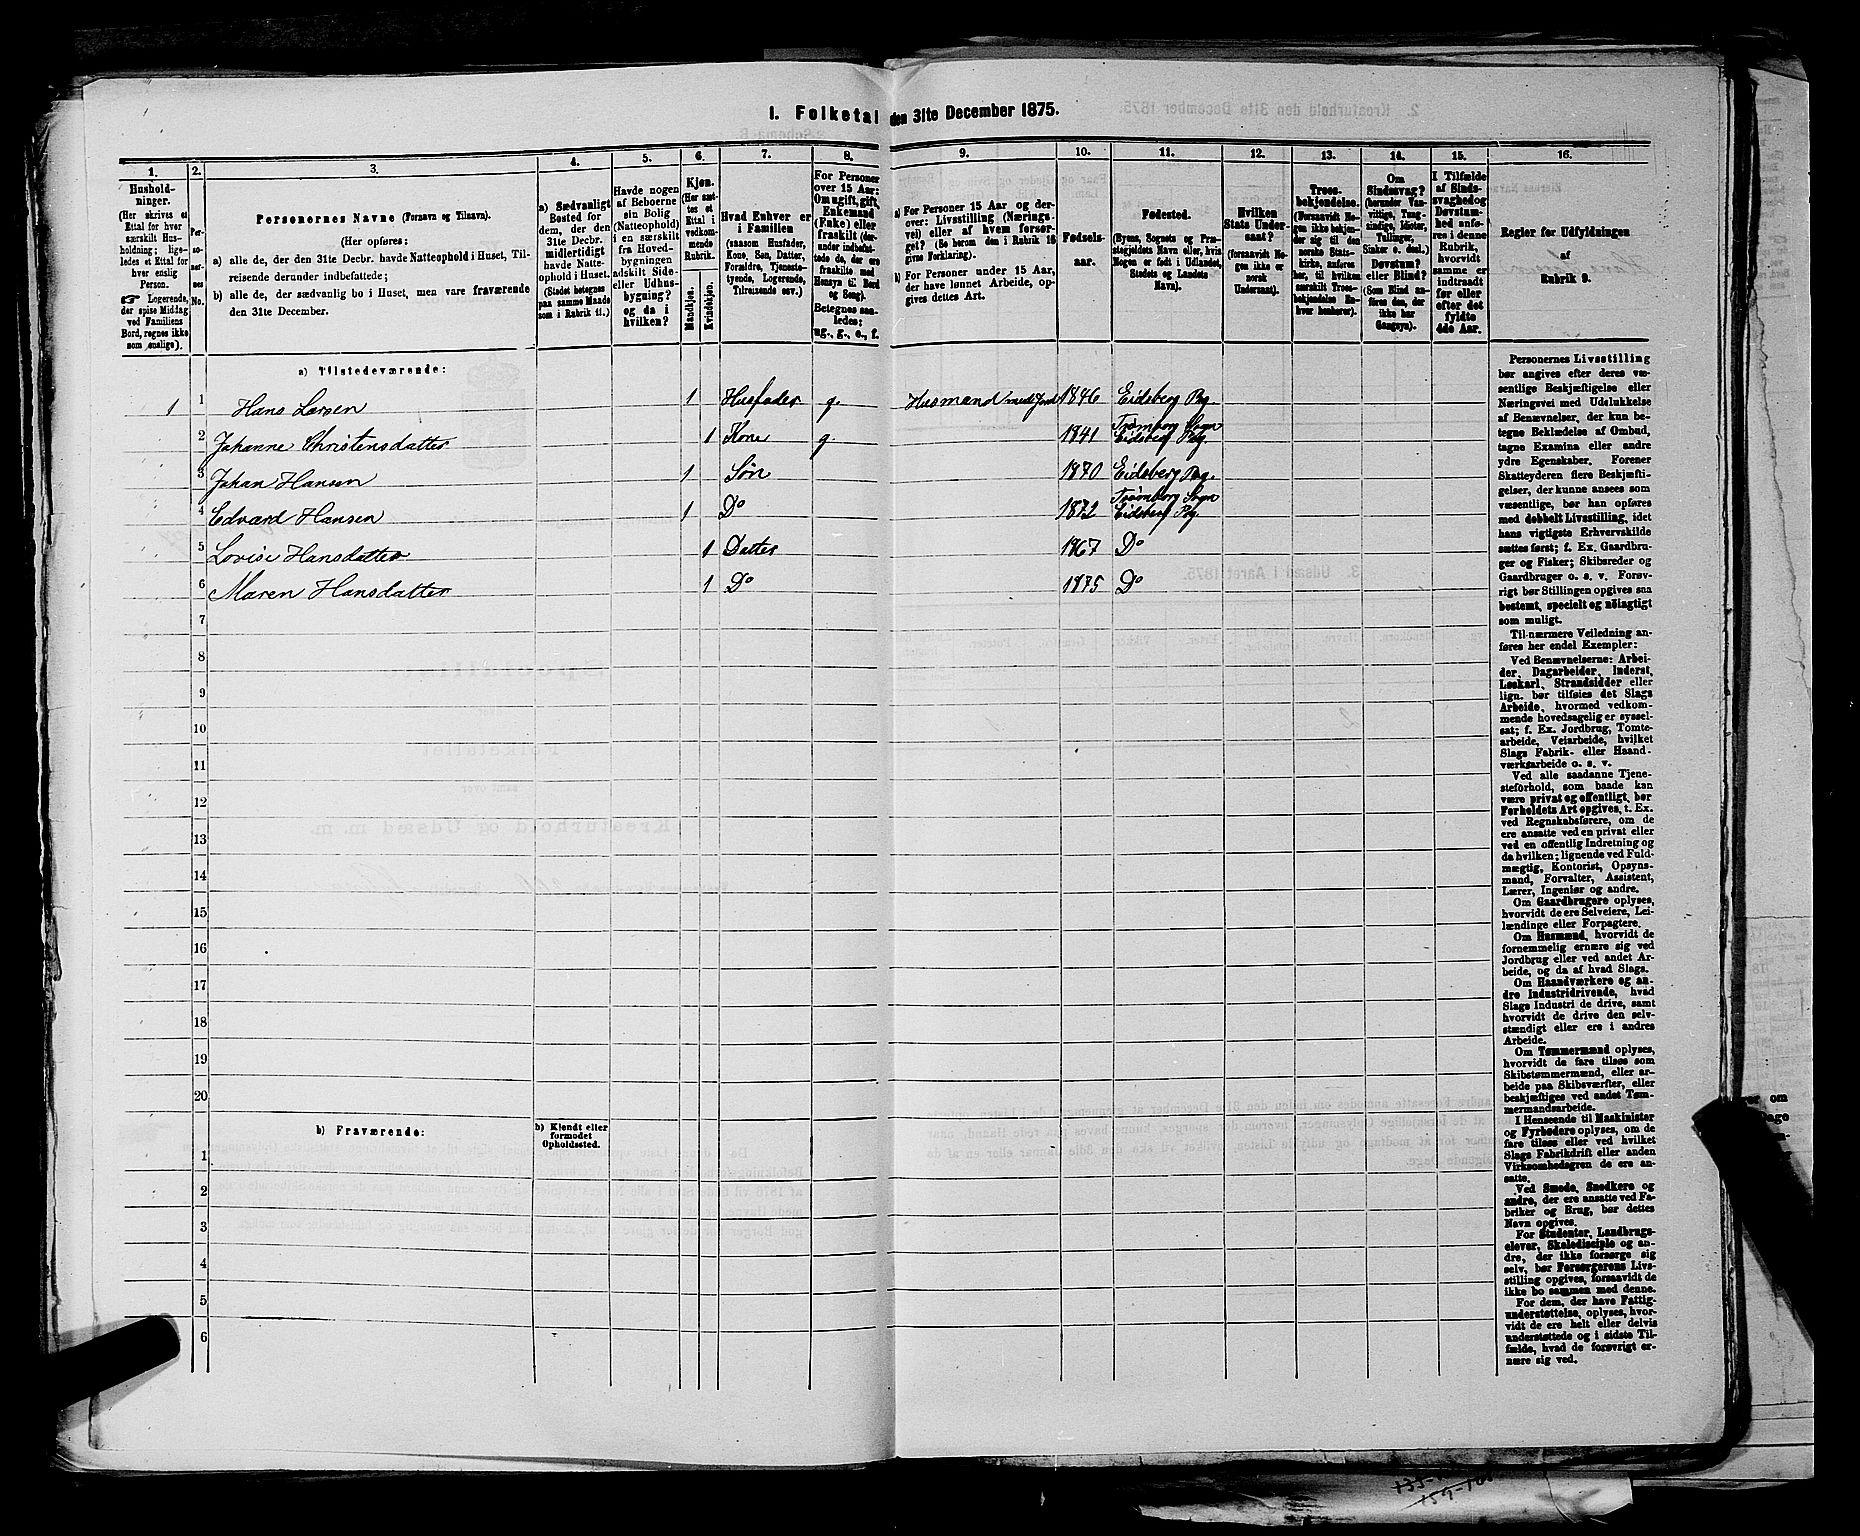 1. Folketal den 31te December 1875.
1. 2. 3. 4. 5. 6. 7. 8. 9. 10. 11. 12. 13. 14. 15. 16.
Hushold-
ninger.
(Her skrives et
Ettal for hver
særskilt Hus-
holdning; lige-
ledes et Ettal for
hver enslig
Person.
☞ Logerende,
der spise Middag
ved Familiens
Bord, regnes ikke
som enslige).
Per-
so-
ner-
nes
No.
Personernes Navne (Fornavn og Tilnavn).
(Her opføres:
a) alle de, der den 31te Decbr. havde Natteophold i Huset, Til-
reisende derunder indbefattede;
b) alle de, der sædvanlig bo i Huset, men vare fraværende
den 31te December.
a) Sædvanligt
Bosted for
dem, der den
31te Decbr.
midlertidigt
havde Natte-
ophold i Huset.
(Stedet betegnes
paa samme Maade
som i Rubrik 11.)
Havde nogen
af Beboerne
sin Bolig
(Natteophold)
i en særskilt
fra Hoved-
bygningen
adskilt Side-
eller Udhus-
bygning?
og da i
hvilken?
Kjøn.
(Her sæt-
tes et
Ettal i
vedkom-
mende
Rubrik.
Mandkjøn.
Kvindekjøn.
Hvad Enhver er
i Familien
(saasom Husfader,
Kone, Søn, Datter,
Forældre, Tjeneste-
tyende, Logerende,
Tilreisende osv.)
For Personer
over 15 Aar:
Om ugift, gift,
Enkemand
(Enke) eller
fraskilt (der-
under indbefat-
tede de, der ere
fraskilte med
Hensyn til Bord
og Seng).
Betegnes saa-
ledes:
ug., g., e., f.
a) For Personer 15 Aar og der-
over: Livsstilling (Nærings-
vei) eller af hvem forsør-
get? (Se herom den i Rubrik 16
givne Forklaring).
b) For Personer under 15 Aar,
der have lønnet Arbeide, op-
gives dettes Art.
Fødsels-
aar.
Fødested.
(Byens, Sognets og Præ-
stegjeldets Navn eller, hvis
Nogen er født i Udlandet,
Stedets og Landets
Navn).
Hvilken
Stats Under-
saat?
(forsaavidt No-
gen ikke er
norsk
Undersaat).
Troes-
bekjendelse.
(Forsaavidt No-
gen ikke bekjen-
der sig til den
norske Stats-
kirke, anføres
her, til hvilken
særskilt Troes-
bekjendelse En-
hver henhører).
Om
Sindssvag?
(herunder Van-
vittige, Tung-
sindige, Idioter,
Tullinger,
Sinker o. desl.)
Døvstum?
eller Blind?
(Som Blind an-
føres den, der
ikke har
Gangsyn).
I Tilfælde
af Sinds-
svaghed og
Døvstum-
hed anfø-
res i denne
Rubrik,
hvorvidt
samme er
indtraadt
før eller
efter det
fyldte
4de Aar.
Regler for Udfyldningen
af
Rubrik 9.
a) Tilstedeværende:
1 1 Hans Larsen 1 Husfader g. Husmand med Jord 1846 Eidsberg Pg.
2 Johanne Christensdatter 1 Kone g. 1841 Trømborg Sogn Eidsberg Pg.
3 Johan Hansen 1 Søn 1870 Eidsberg Pg.
4 Edvard Hansen 1 Do 1872 Trømborg Sogn Eidsberg Pg.
5 Lovise Hansdatter 1 Datter 1867 Do
6 Maren Hansdatter 1 Do 1875 Do
7
8
9
10
11
12
13
14
15
16
17
18
19
20
b) Fraværende:
b) Kjendt eller
formodet
Opholdssted.
1
2
3
4
5
6
Personernes Livsstilling
bør angives efter deres væ-
sentlige Beskjæftigelse eller
Næringsvei med Udelukkelse
af Benævnelser, der kun be-
tegne Beklædelse af Ombud,
tagne Examina eller andre
ydre Egenskaber. Forener
Skatteyderen flere Beskjæfti-
gelser, der kunne ansees som
væsentlige, bør han opføres
med dobbelt Livsstilling, idet
hans vigtigste Erhvervskilde
sættes først; f. Ex. Gaardbru-
ger og Fisker; Skibsreder og
Gaardbruger o. s. v. Forøv-
rigt bør Stillingen opgives saa
bestemt, specielt og nöiagtigt
som muligt.
Til nærmere Veiledning an-
føres her endel Exempler:
Ved Benævnelserne: Arbei-
der, Dagarbeider, Inderst,
Løskarl, Strandsidder eller
lign. bør tilføies det Slags
Arbeide, hvormed vedkom-
mende hovedsagelig er syssel-
sat; f. Ex. Jordbrug, Tomte-
arbeide, Veiarbeide, hvilket
Slags Fabrik- eller Haand-
værksarbeide o. s. v.
Ved alle saadanne Tjene-
steforhold, som baade kan
være privat og offentligt, bør
Forholdets Art opgives, t. Ex.
ved Regnskabsførere, om de
ere ansatte ved en privat eller
ved en offentlig Indretning og
da hvilken; lignende ved Fuld-
mægtig, Kontorist, Opsyns-
mand, Forvalter, Assistent,
Lærer, Ingeniør og andre.
Om Gaardbrugere oplyses,
hvorvidt de ere Selveiere, Lei-
lændinge eller Forpagtere.
Om Husmænd, hvorvidt de
fornemmelig ernære sig ved
Jordbrug eller ved andet Ar-
beide, og da af hvad Slags.
Om Haandværkere og an-
dre Industridrivende, hvad
Slags Industri de drive, samt
hvorvidt de drive den selv-
stændigt eller ere i andres
Arbeide.
Om Tømmermænd oplyses,
hvorvidt de fare tilsøs som
Skibstømmermænd, eller ar-
beide paa Skibsværfter, eller
beskjæftiges ved andet Tøm-
mermandsarbeide.
I Henseende til Maskinister
og Fyrbødere oplyses, om de
fare tilsøs eller ved hvilket
Slags Fabrikdrift eller anden
Virksomhedsgren de ere an-
satte.
Ved Smede, Snedkere og
andre, der ere ansatte ved Fa-
briker og Brug, bør dettes
Navn opgives.
For Studenter, Landbrugs-
elever, Skoledisciple og an-
dre, der ikke forsørge sig
selv, bør Forsørgerens Livs-
stilling opgives, forsaavidt de
ikke bo sammen med denne.
For dem, der have Fattig-
understøttelse, oplyses, hvor-
vidt de ere helt eller delvis
understøttede og i sidste Til-
fælde, hvad de forøvrigt er-
nære sig ved.